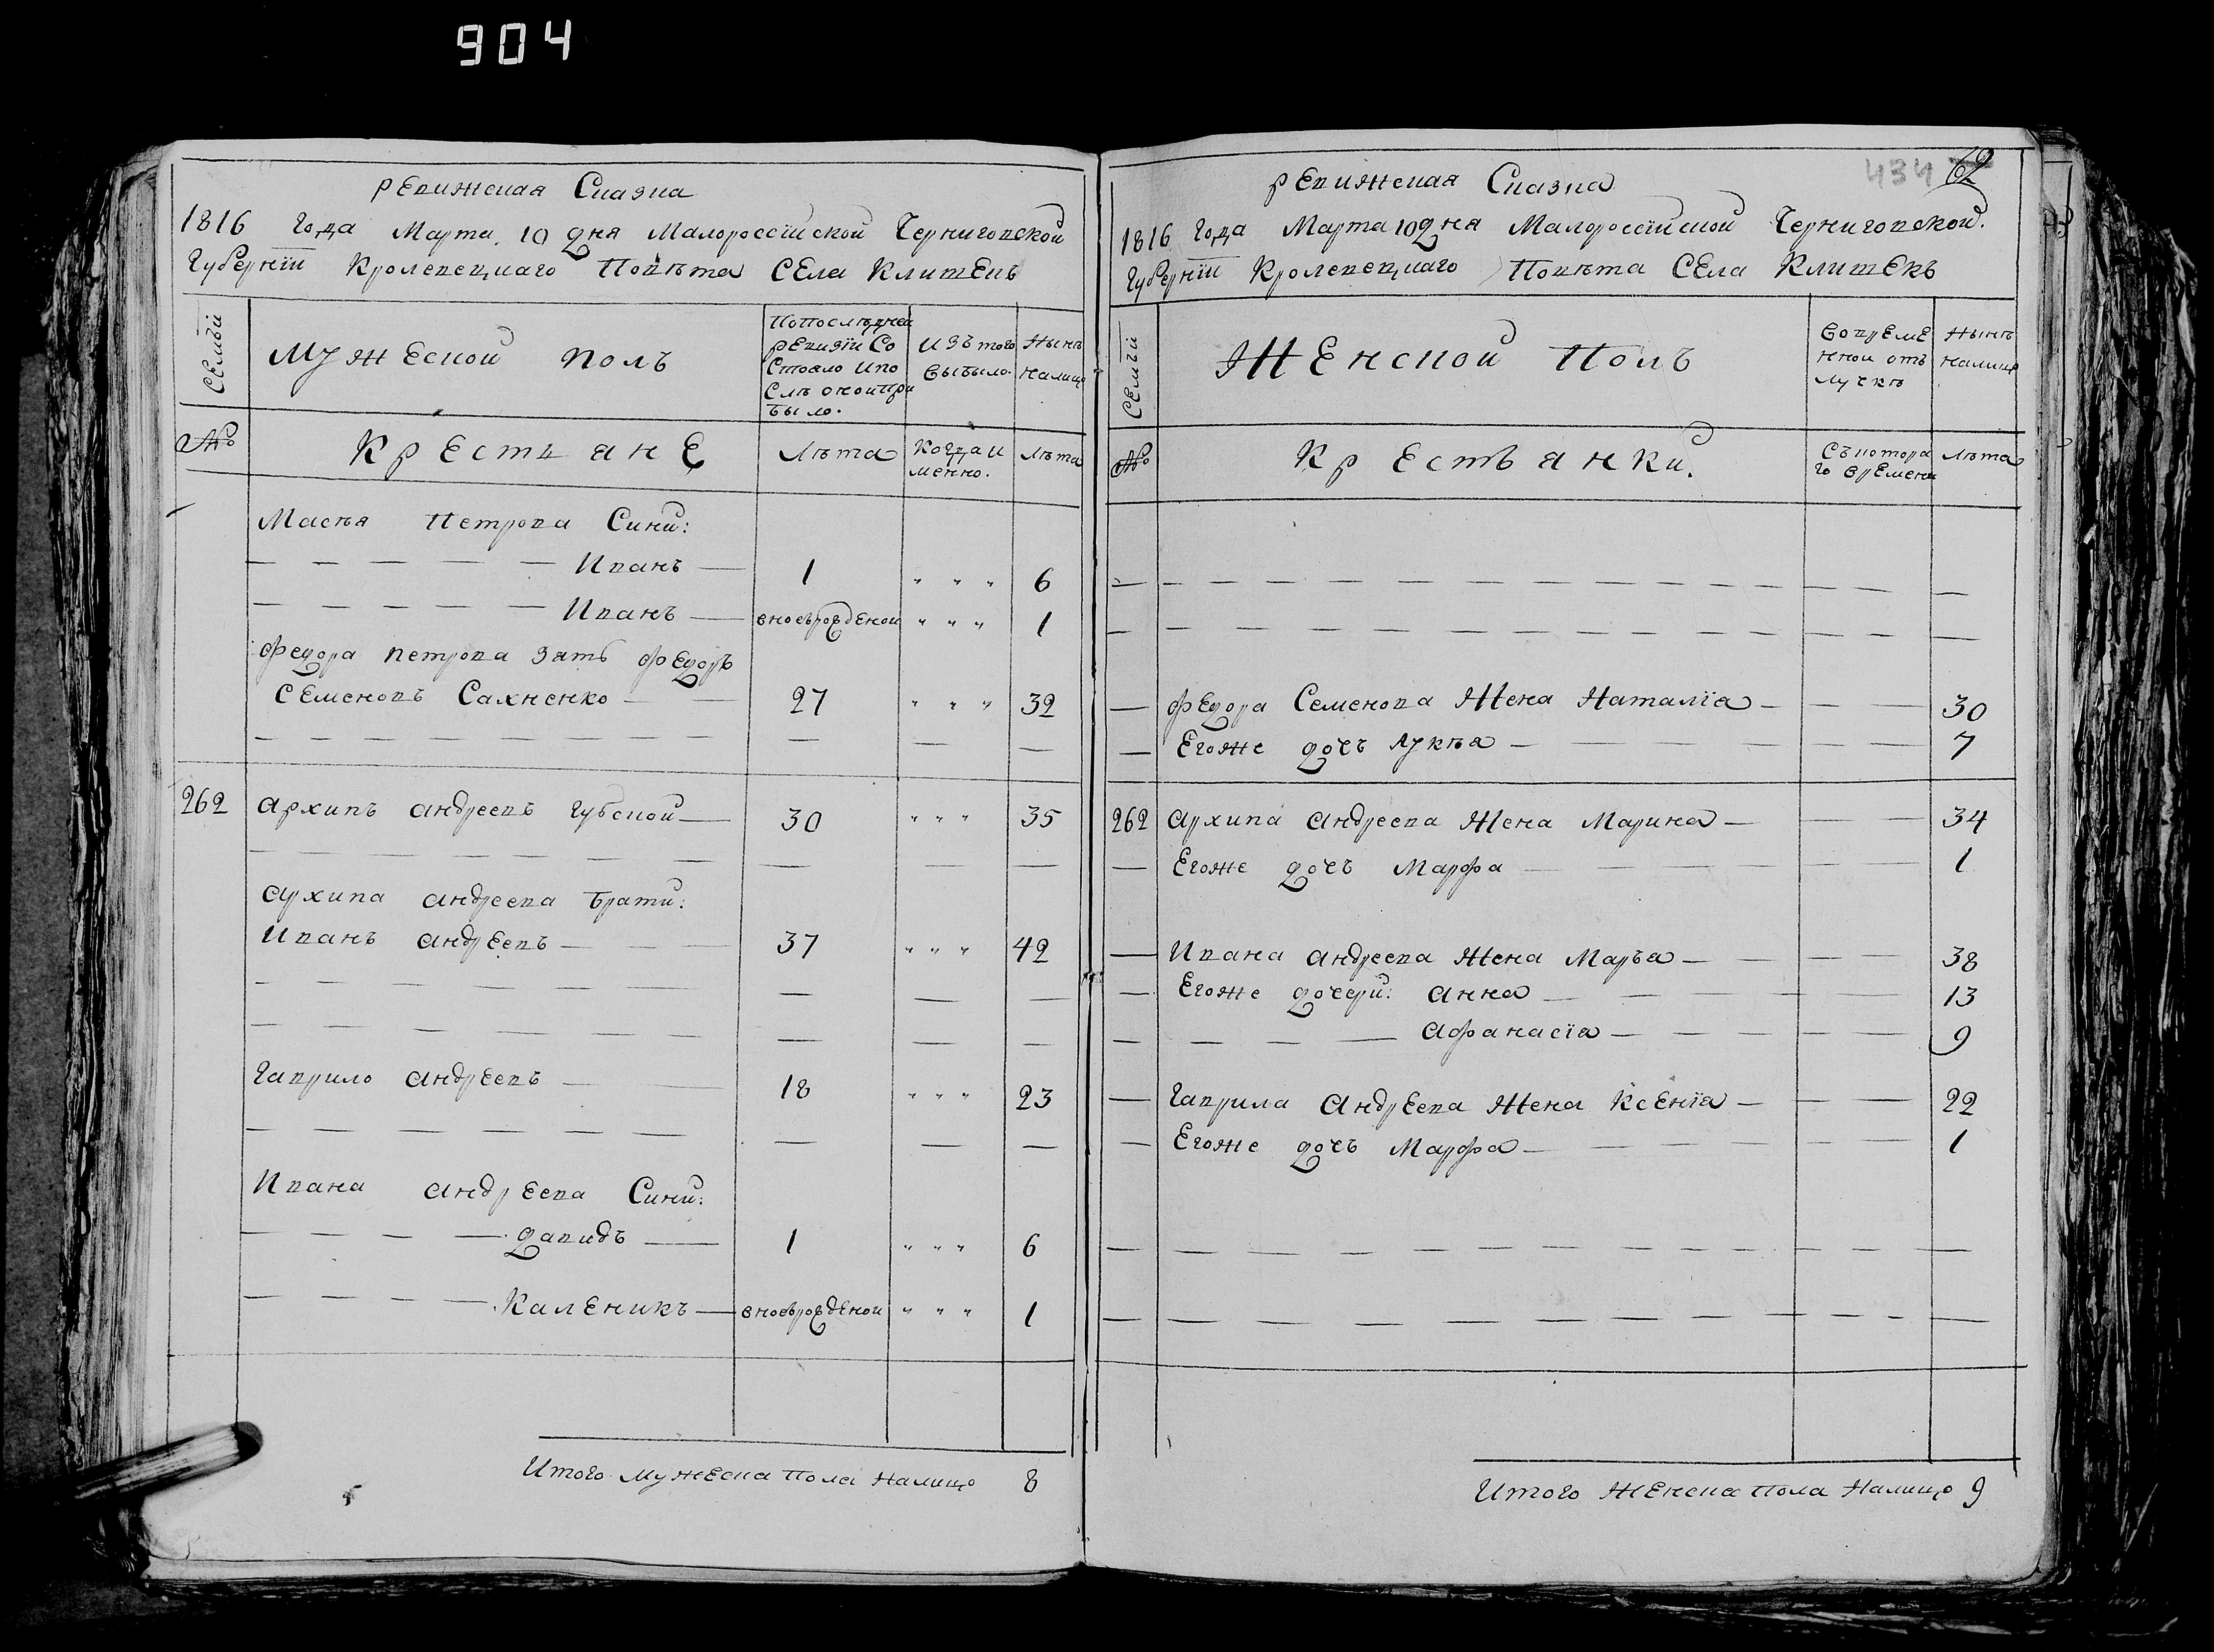 904
Ревижская Сказка
1816 года Марта 10 дня Малороссїйской Черниговской
Губернїи Кролевецкаго Повѣта Села Клишекъ
Семьи
Мужеской полъ
По последней
ревизїи Со
Стояло и по
слѣ оной при
было.
Изъ того
выбыло.
Нынѣ
налицо
№
Крестьяне
Лѣта
Когда и
менно.
Лѣта
Петрова Сини:
Иванъ 1 " " " 6
Иванъ вновьрожденой " " " 1
Федора Петрова Зять Федоръ
Семеновъ Сахненко 27 " " " 32
262 Архипъ Андреевъ Губской 30 " " " 35
Архипа Андреева Брати:
Иванъ Андреевъ 37 " " " 42
Гаврило Андреевъ 18 " " " 23
Ивана Андреева Сини:
Давидъ 1 " " " 6
Каленикъ вновьрожденой " " " 1
Итого мужеска пола налицо 8
434 62
Ревижская Сказка
1816 года Марта 10 дня Малороссїйской Черниговской.
Губернїи Кролевецкаго Повѣта Села Клишекъ
Семьи
Женской Полъ
Во време
нной отъ
лучкѣ
Нынѣ
налицо
№
Крестьянки.
Съ котора
го времени
Лѣта
Федора Семенова Жена Наталїа 30
Егоже дочь Лукѣа 7
262 Архипа Андреева Жена Марина 34
Егоже дочь Марфа 1
Ивана Андреева Жена Марья 38
Егоже дочери: Анна 13
Афанасїа 9
Гаврила Андреева Жена Ксенїа 22
Егоже дочь Марфа 1
Итого Женска пола Налицо 9